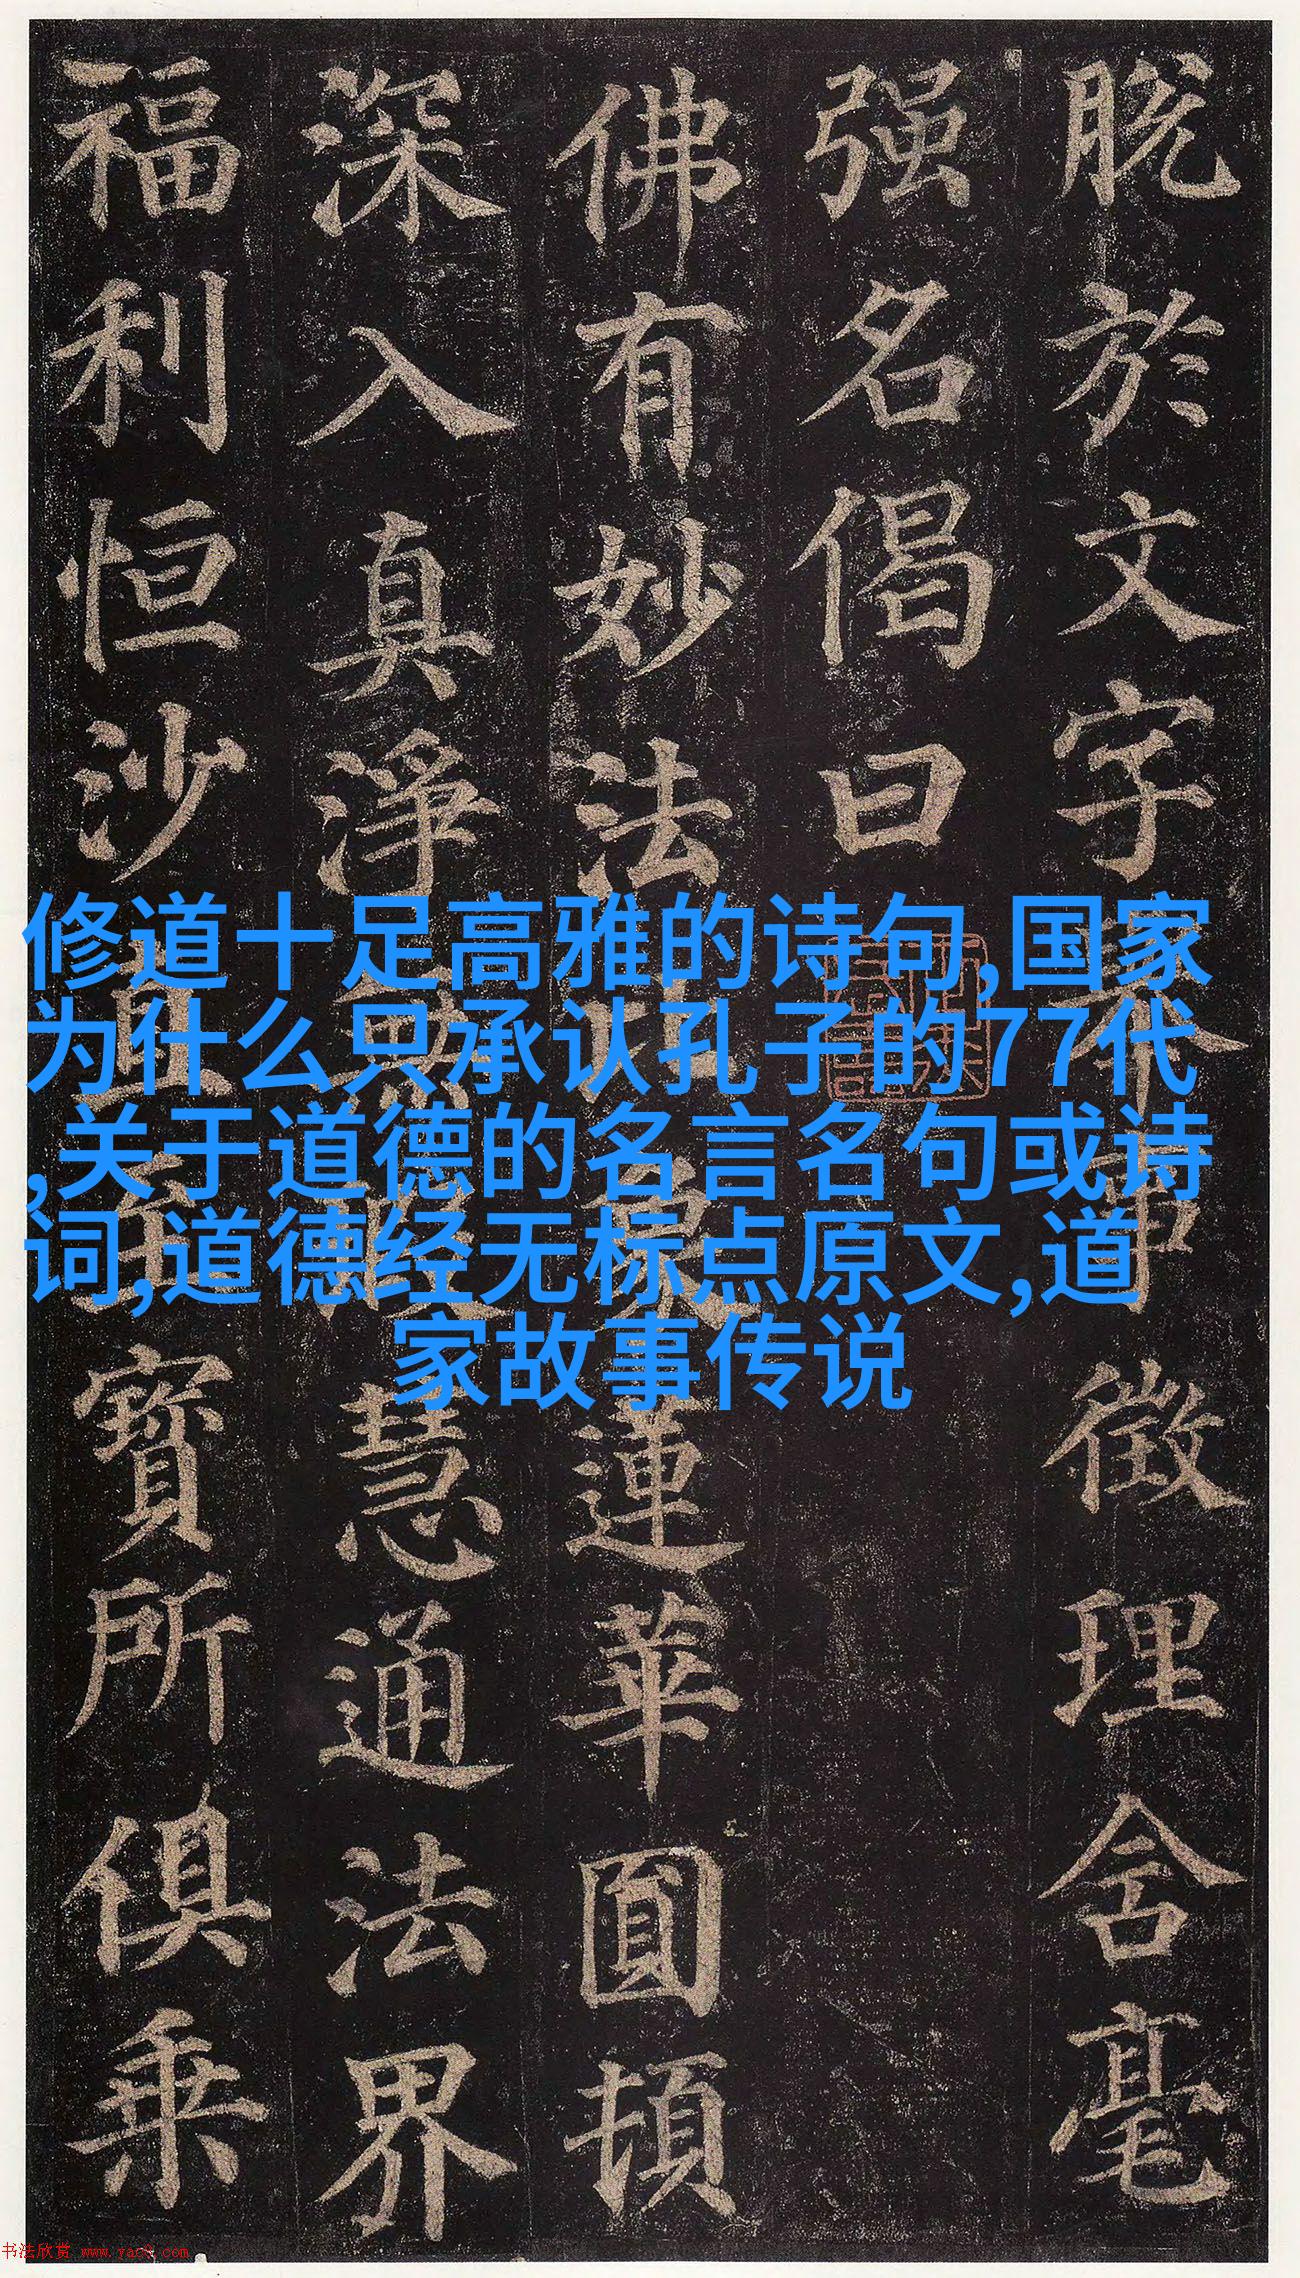 脱於文字舉事徵理含毫
强名偈曰
佛有妙法比象蓮華圓頓
深入真淨無慧通法界
福利恒沙直寶所俱乘
修道十足高雅的诗句,国家
为什么只承认孔子的77代
,关于道德的名言名句或诗
词,道德经无标点原文,道
家故事传说
书法欣赏 www.yac8.com